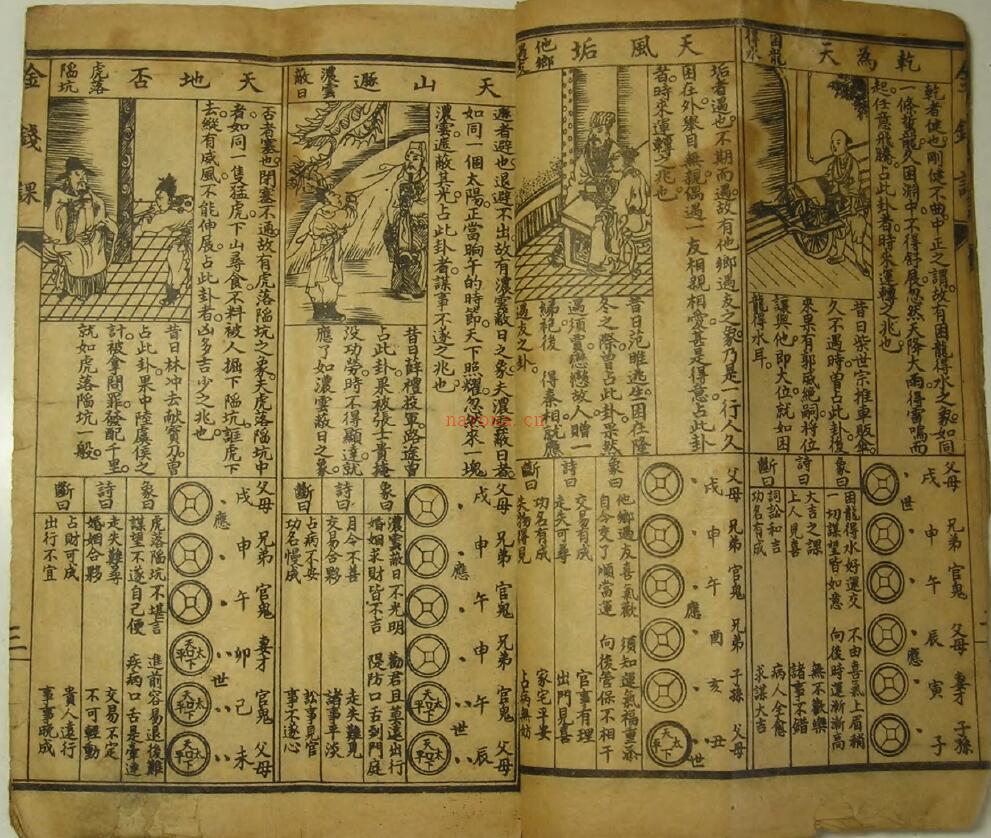 乾為天
困龍得水
乾者健也剛健不曲中正之謂故有困龍得水之象如同
一條蟄龍久困淵中不得舒展忽然天降大雨得雷鳴而
起任意飛騰占此卦者時來運轉之兆也
昔日柴世宗推車販傘
久不遇時曾占此卦後
來果有郭威絕嗣將位
讓與他即大位就如困
龍得水耳
父母 戌 世
兄弟 申
官鬼 午
父母 辰 應
妻才 寅
子孫 子
象曰
困龍得水好運交 不由喜氣上眉稍
一切謀望皆如意 向後時運漸漸高
詩曰
大吉之課 無不歡樂
上人見喜 諸事不錯
斷曰
詞訟和吉 病人全愈
功名有成 求謀大吉
天風垢
他鄉遇友
垢者遇也不期而遇故有他鄉遇友之象乃是一行人久
困在外舉目無親偶遇一友相親相愛甚是得意占此卦
者時來運轉之兆也
昔日范睢逃生困在隆
冬之際曾占此卦果然
遇須賈戀戀故人贈一
綈袍後 得秦相就應
遇友之卦
父母 戌
兄弟 申
官鬼 午 應
兄弟 酉
子孫 亥
父母 丑 世
天下太平
象曰
他鄉遇友喜氣歡 須知運氣福重添
自今交了順當運 向後管保不相干
詩曰
交易有成 官事有理
走失可尋 出門見喜
斷曰
功名有成 家宅平安
失物得見 占病無妨
天山遯
濃雲蔽日
遯者避也退避不出故有濃雲蔽日之象夫濃雲蔽日者
如同一個太陽正當晌午的時節天下照耀忽卜來一塊
濃雲遮蔽其光占此卦者謀事不遂之兆也
昔日薛禮投軍路途曾
占此卦果被張士貴掩
沒功勞時不得顯達就
應了如濃雲蔽日之象
父母 戌
兄弟 申 應
官鬼 午
兄弟 申
官鬼 午 世
父母 辰
天下太平
天下太平
象曰
濃雲蔽日不光明 勸君且莫遠出行
婚姻求財皆不吉 隄防口舌到門庭
詩曰
月令不善 走失難見
交易不合夥 諸事平淡
斷曰
占病不安 訟事見官
功名慢成 事不遂心
天地否
虎落陷坑
否者塞也閉塞不通故有虎落陷坑之象夫虎落陷坑中
者如同一隻猛虎下山尋食不料被人掘下陷坑誆虎下
去縱有威風不能伸展占此卦者凶多吉少之兆也
昔日林冲去献寶刀曾
占此卦果中陸虞侯之
計被拿問罪發配千里
就如虎落陷坑一般
父母 戌 應
兄弟 申
官鬼 午
妻才 卯 世
官鬼 己
父母 未
天下太平
天下太平
天下太平
象曰
虎落陷坑不堪言 進前容易退後難
謀望不遂自己便 疾病口舌是牽連
詩曰
走失難尋 交易不定
婚姻合夥 不可輕動
斷曰
占財可成 貴人遠行
出行不宜 事事晚成
金錢課
三
nayona.cn